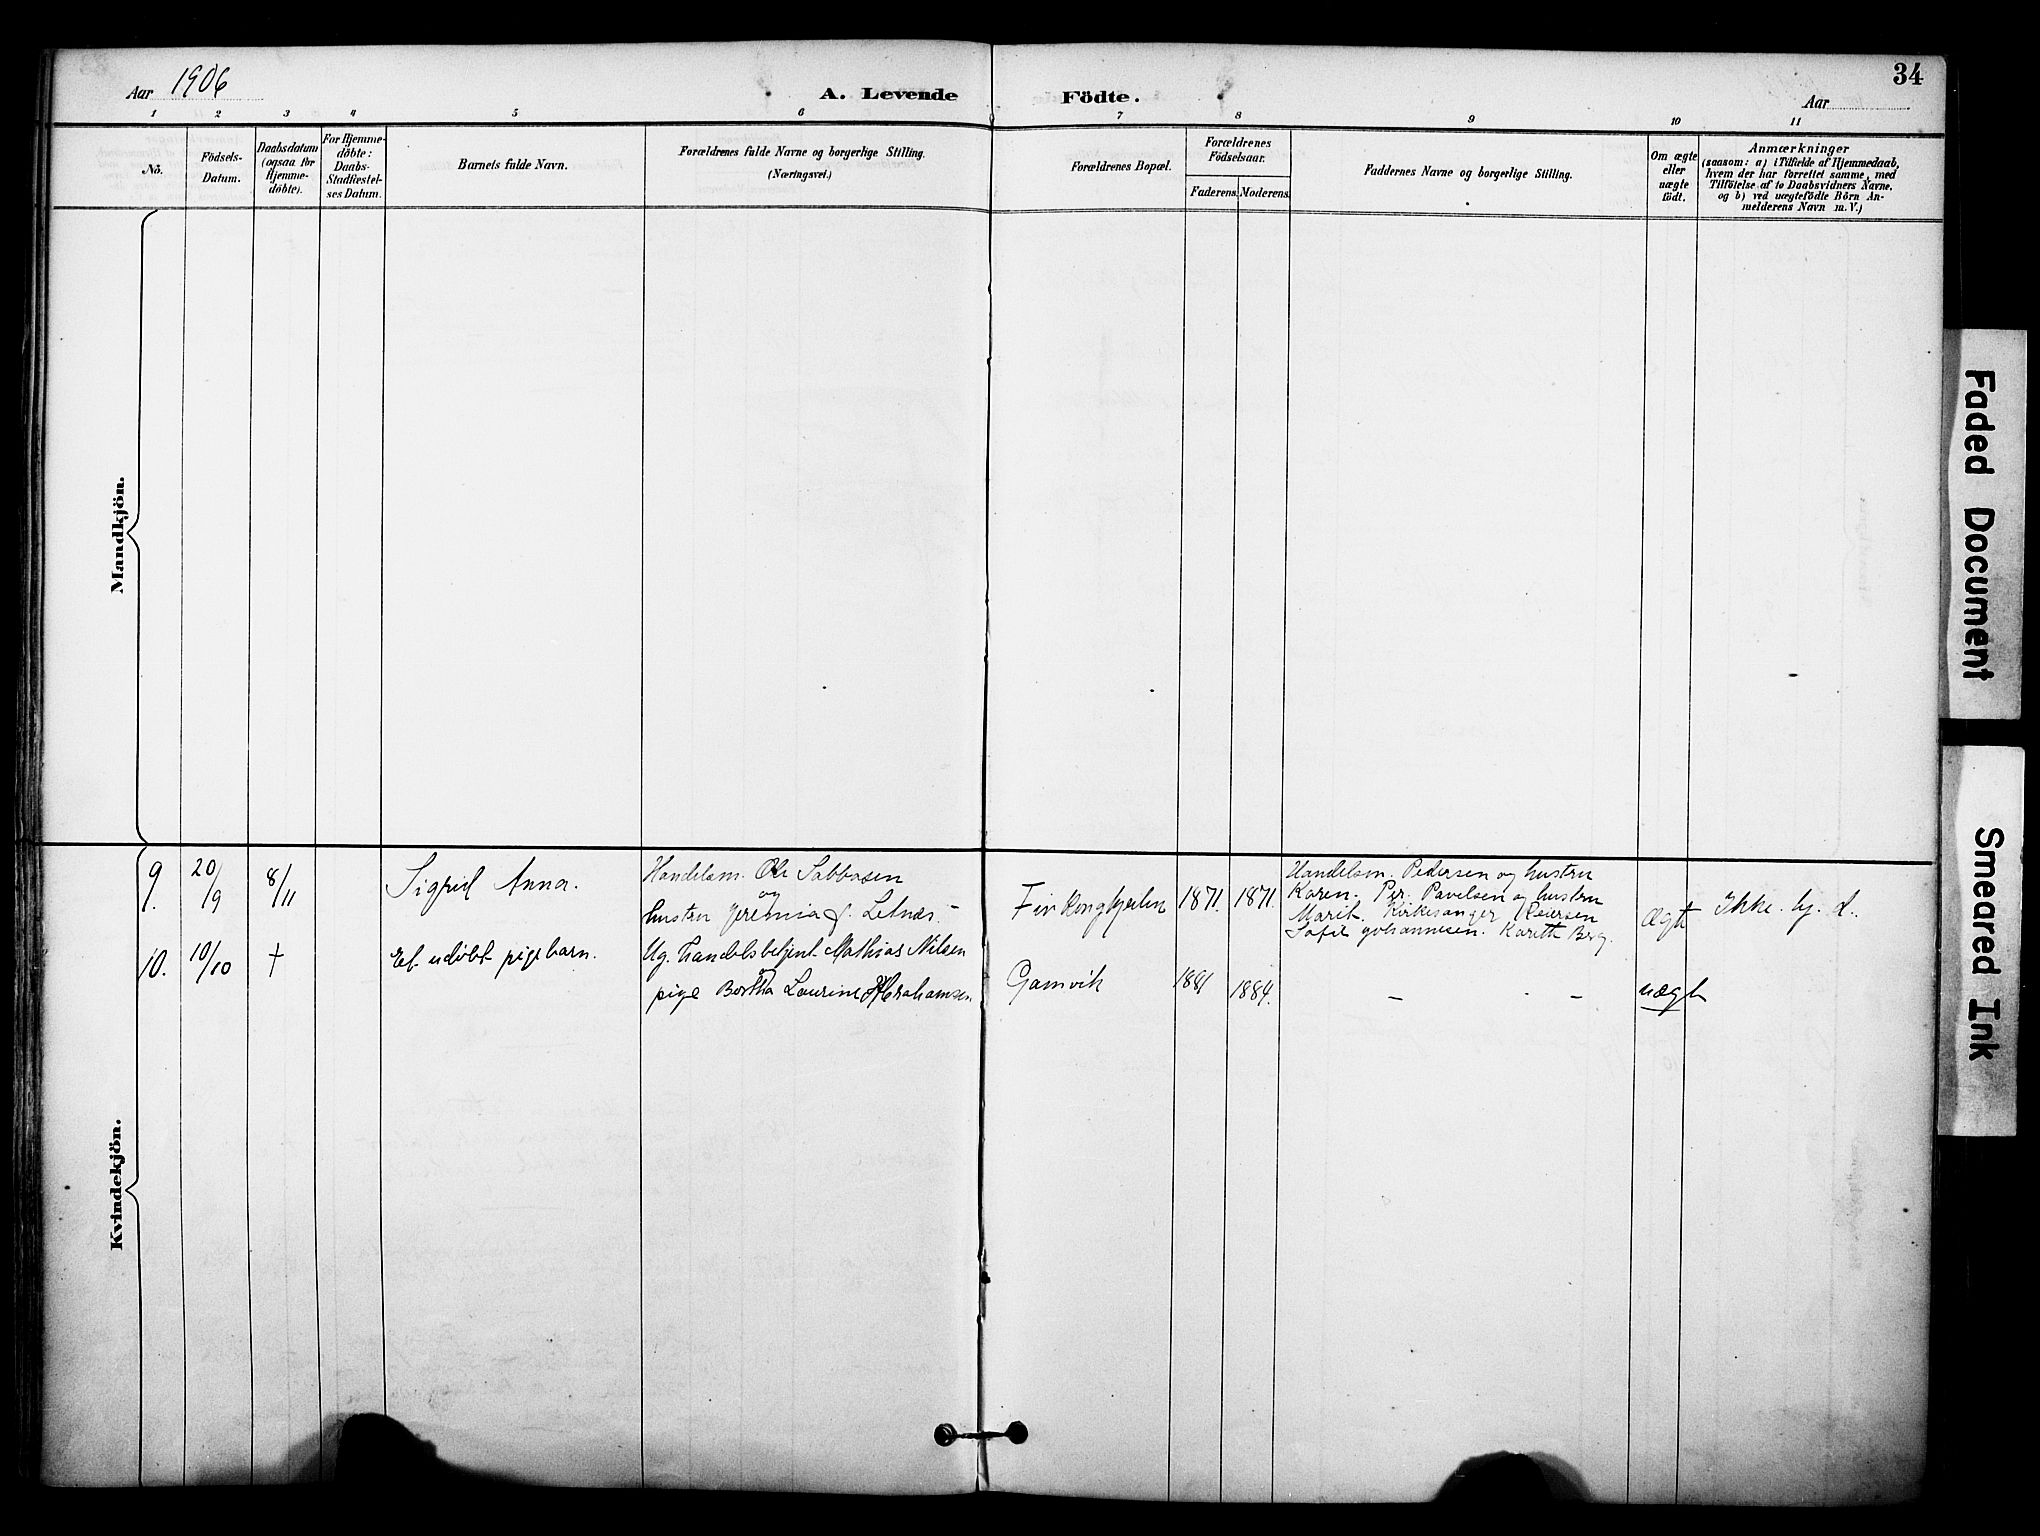 Aar 1906
A. Levende Födte.
34
Aar
1 2 3 4 5 6 7 8 9 10 11
No.
Födsels-
Datum.
Daabsdatum
(ogsaa for
Hjemme-
döbte).
For Hjemme-
döbte:
Daabs-
Stadfæstel-
ses Datum.
Barnets fulde Navn.
Forældrenes fulde Navne og borgerlige Stilling.
(Næringsvei.)
Forældrenes Bopæl.
Forældrenes
Födselsaar.
Faderens. Moderens.
Faddernes Navne og borgerlige Stilling.
Om ægte
eller
uægte
födt.
Anmærkninger
(saasom: a) i Tilfælde af Hjemmedaab,
hvem der har forrettet samme, med
Tilföielse af to Daabsvidners Navne.
og b) ved uægtefödte Börn An-
melderens Navn m. V.)
Mandkjön.
Kvindekjön.
9. 20/9 8/11
Sigrid Anna.
Handelsm. Ole Sabbasen
og
hustru Jeremia f. Letnes.
Finkongkjeilen
1871. 1871.
Handelsm. Pedersen og hustru
Karen. Per. Pavelsen og hustru
Marit. Kirkesanger Reiersen
Sofie Johannesen. Karitte Berg.
Ægte
Ikke. hj. d.
10. 10/10 †
Et udöbt pigebarn.
Ug. handelsbetjent Mathias Nilsen
og
pige Bertha Laurine Abrahamsen
Gamvik
1881 1884.
– –
uægt
Faded Document
Smeared Ink